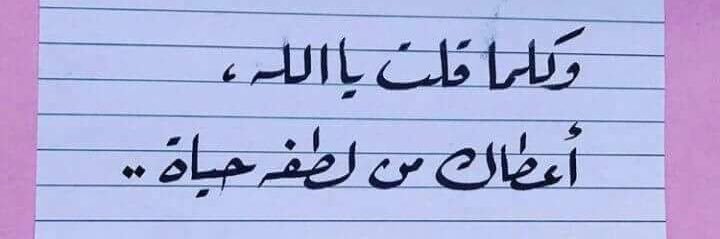 وكلما قلت يا الله ،
أعطاك من لطفه حياة ..